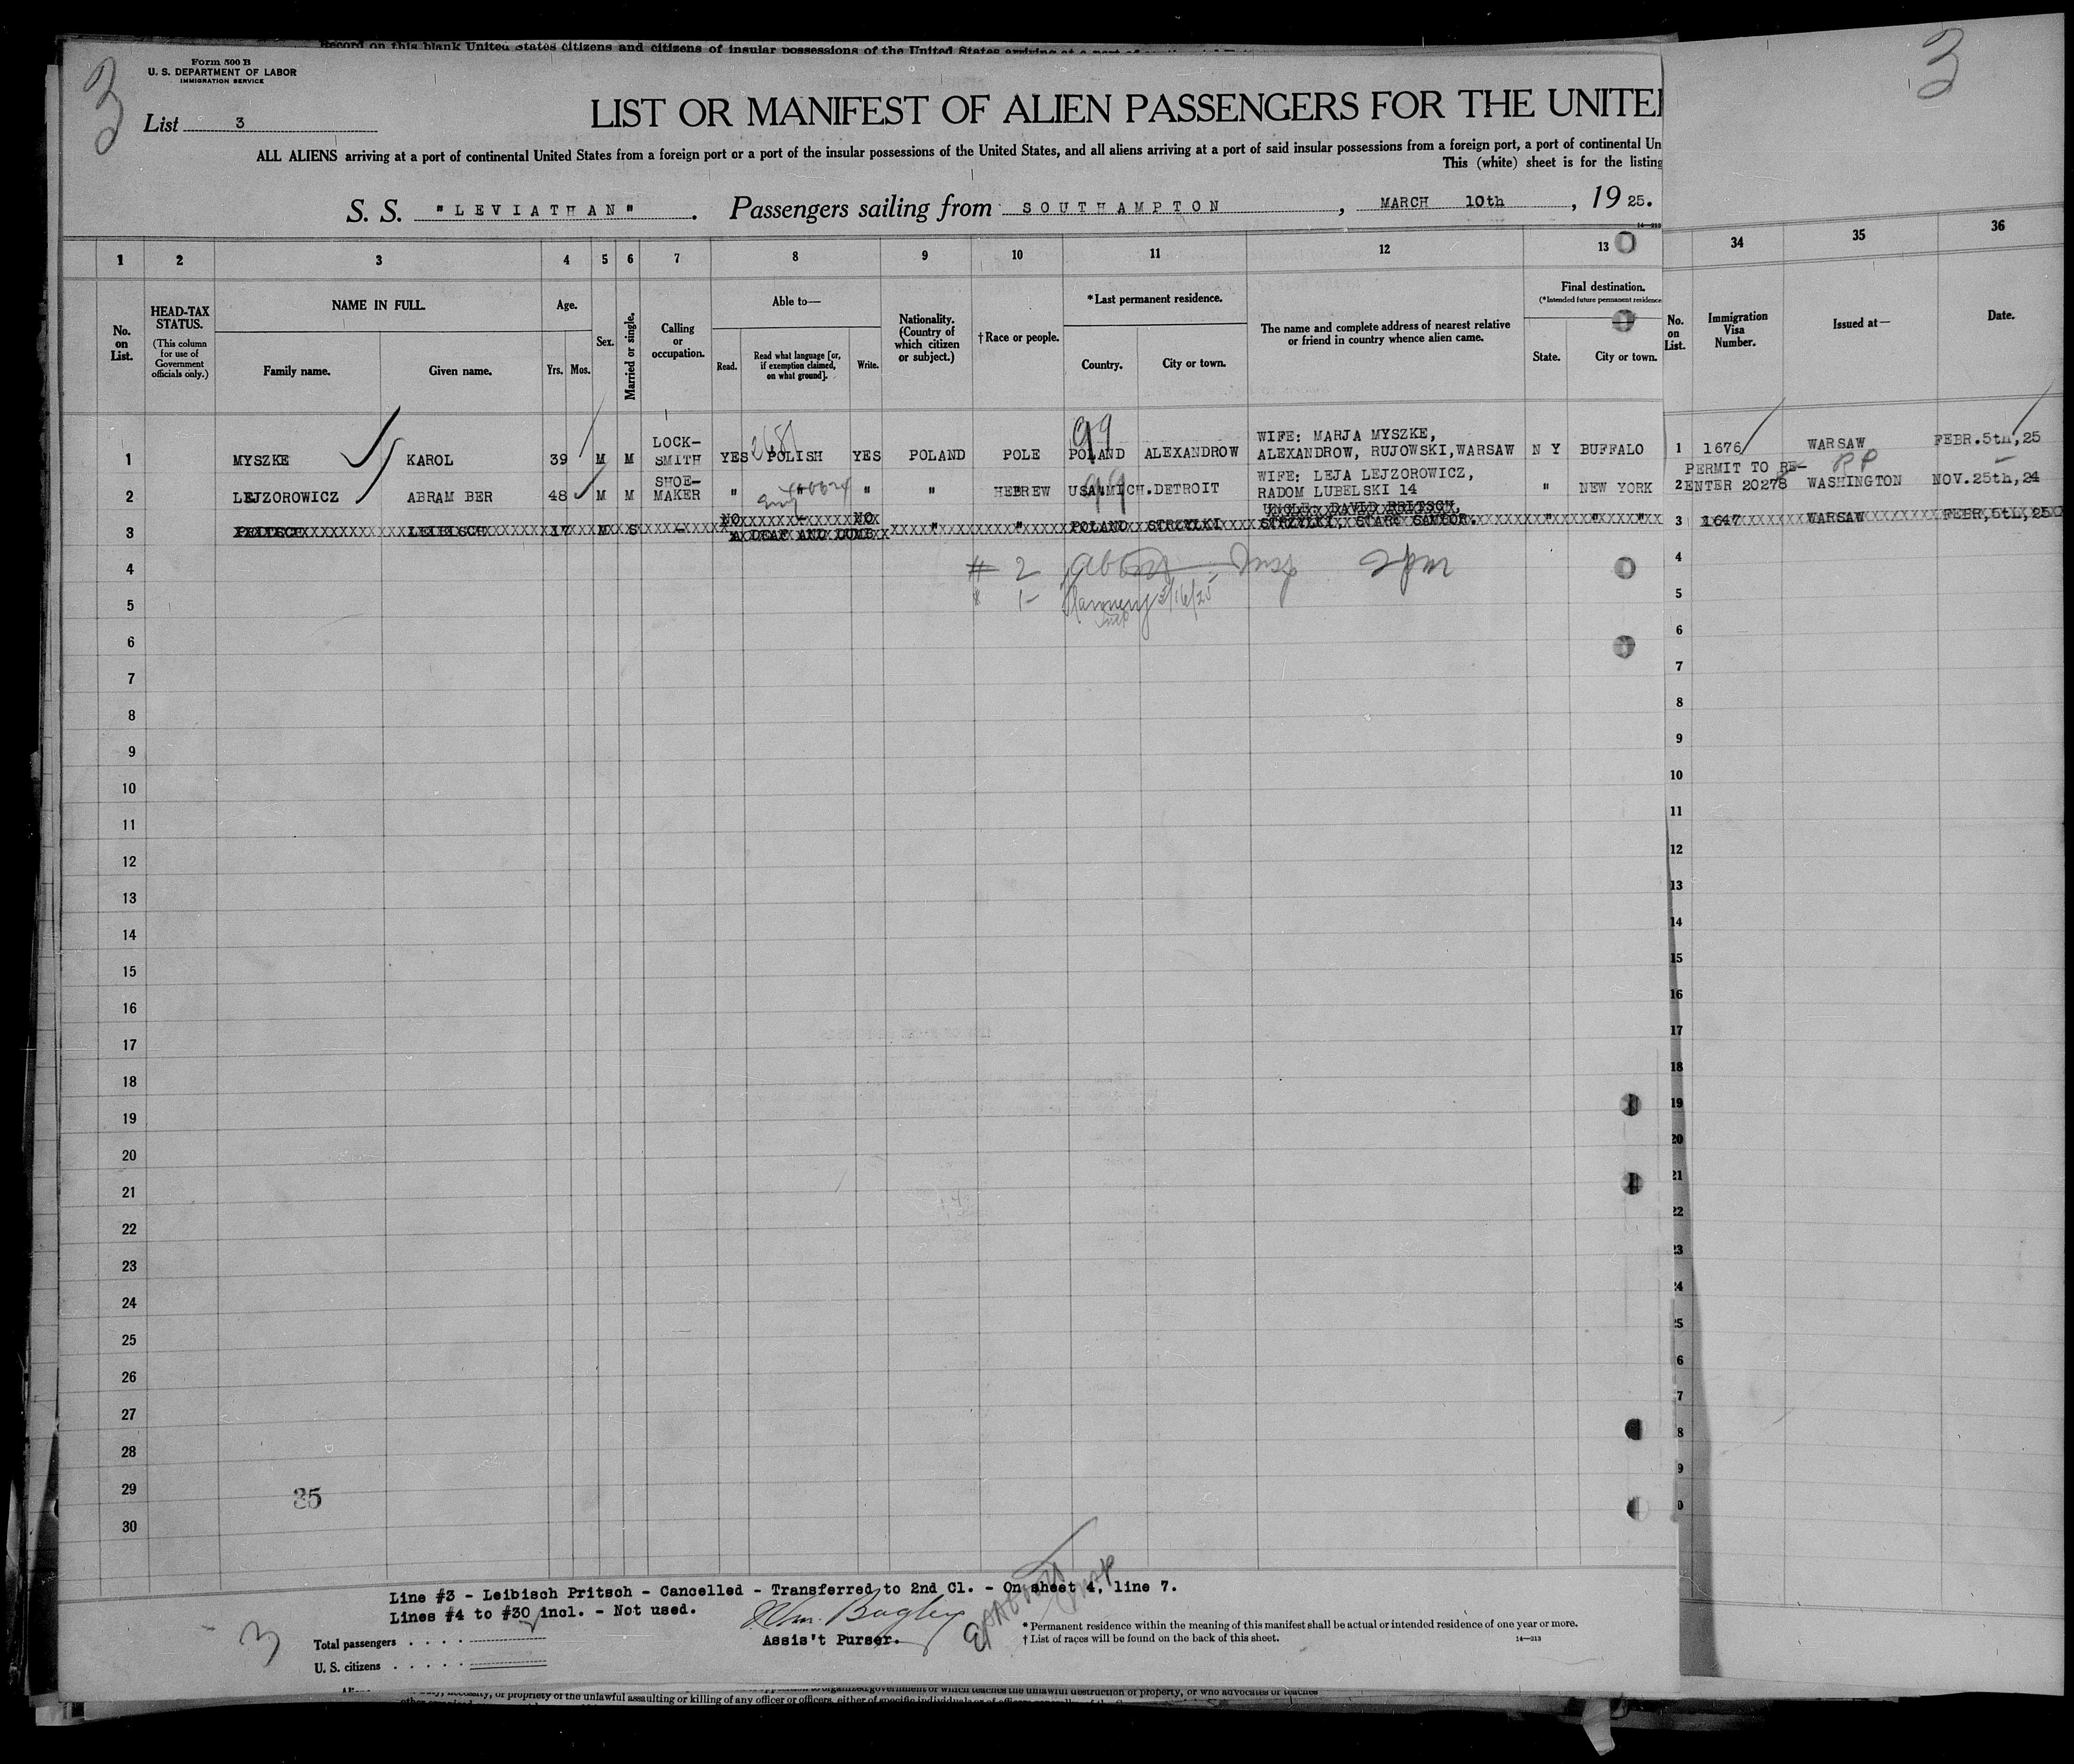 Record on this blank United States citizens and citizens of insular possessions of the United States arriving at a port of
Form 500 B
U. S. DEPARTMENT OF LABOR
IMMIGRATION SERVICE
3
3
List 3
LIST OR MANIFEST OF ALIEN PASSENGERS FOR THE UNITE
ALL ALIENS arriving at a port of continental United States from a foreign port or a port of the insular possessions of the United States, and all aliens arriving at a port of said insular possessions from a foreign port, a port of continental Un
This (white) sheet is for the listing
S. S. "LEVIATHAN". Passengers sailing from SOUTHAMPTON, MARCH 10th, 1925.
14—213
1 2 3 4 5 6 7 8 9 10 11 12 13 34 35 36
No. on List.
HEAD-TAX STATUS. (This column for use of Government officials only.)
NAME IN FULL.
Family name. Given name.
Age.
Yrs. Mos.
Sex.
Married or single.
Calling or occupation.
Able to—
Read. Read what language [or, if exemption claimed, on what ground]. Write.
Nationality. (Country of which citizen or subject.)
†Race or people.
*Last permanent residence.
Country. City or town.
The name and complete address of nearest relative or friend in country whence alien came.
Final destination.
(*Intended future permanent residence
State. City or town.
No. on List.
Immigration Visa Number.
Issued at—
Date.
1 MYSZKE KAROL 39 M M LOCK-SMITH YES POLISH YES POLAND POLE POLAND ALEXANDROW WIFE: MARJA MYSZKE, ALEXANDROW, RUJOWSKI,WARSAW N Y BUFFALO 1 1676 WARSAW FEBR.5th,25
99
2 LEJZOROWICZ ABRAM BER 48 M M SHOE-MAKER " " " " HEBREW USA.MICH.DETROIT WIFE: LEJA LEJZOROWICZ, RADOM LUBELSKI 14 " NEW YORK 2 PERMIT TO RE-ENTER 20278 WASHINGTON NOV.25th,24
99
RP
3 PRITSCH LEIBISCH 17 M S - NO - NO " " POLAND STRZYLKI UNCLE: DAVID PRITSCH, STRZYLKI, STARY SAMBOR. " " " 3 1647 WARSAW FEBR,5th,25
A DEAF AND DUMB
# 2
1- 3/16/25
4 4
5 5
6 6
7 7
8 8
9 9
10 10
11 11
12 12
13 13
14 14
15 15
16 16
17 17
18 18
19 19
20 20
21 21
22 22
23 23
24 4
25 5
26 6
27 7
28 8
29 9
30 0
35
Line #3 - Leibisch Pritsch - Cancelled - Transferred to 2nd Cl. - On sheet 4, line 7.
Lines #4 to #30 incl. - Not used.
Wm. Bagley
Assis't Purser.
3
Total passengers . . . .
U. S. citizens . . . . .
* Permanent residence within the meaning of this manifest shall be actual or intended residence of one year or more.
† List of races will be found on the back of this sheet.
14—213
or propriety of the unlawful assaulting or killing of any officer or officers, either of specific individuals or of officers